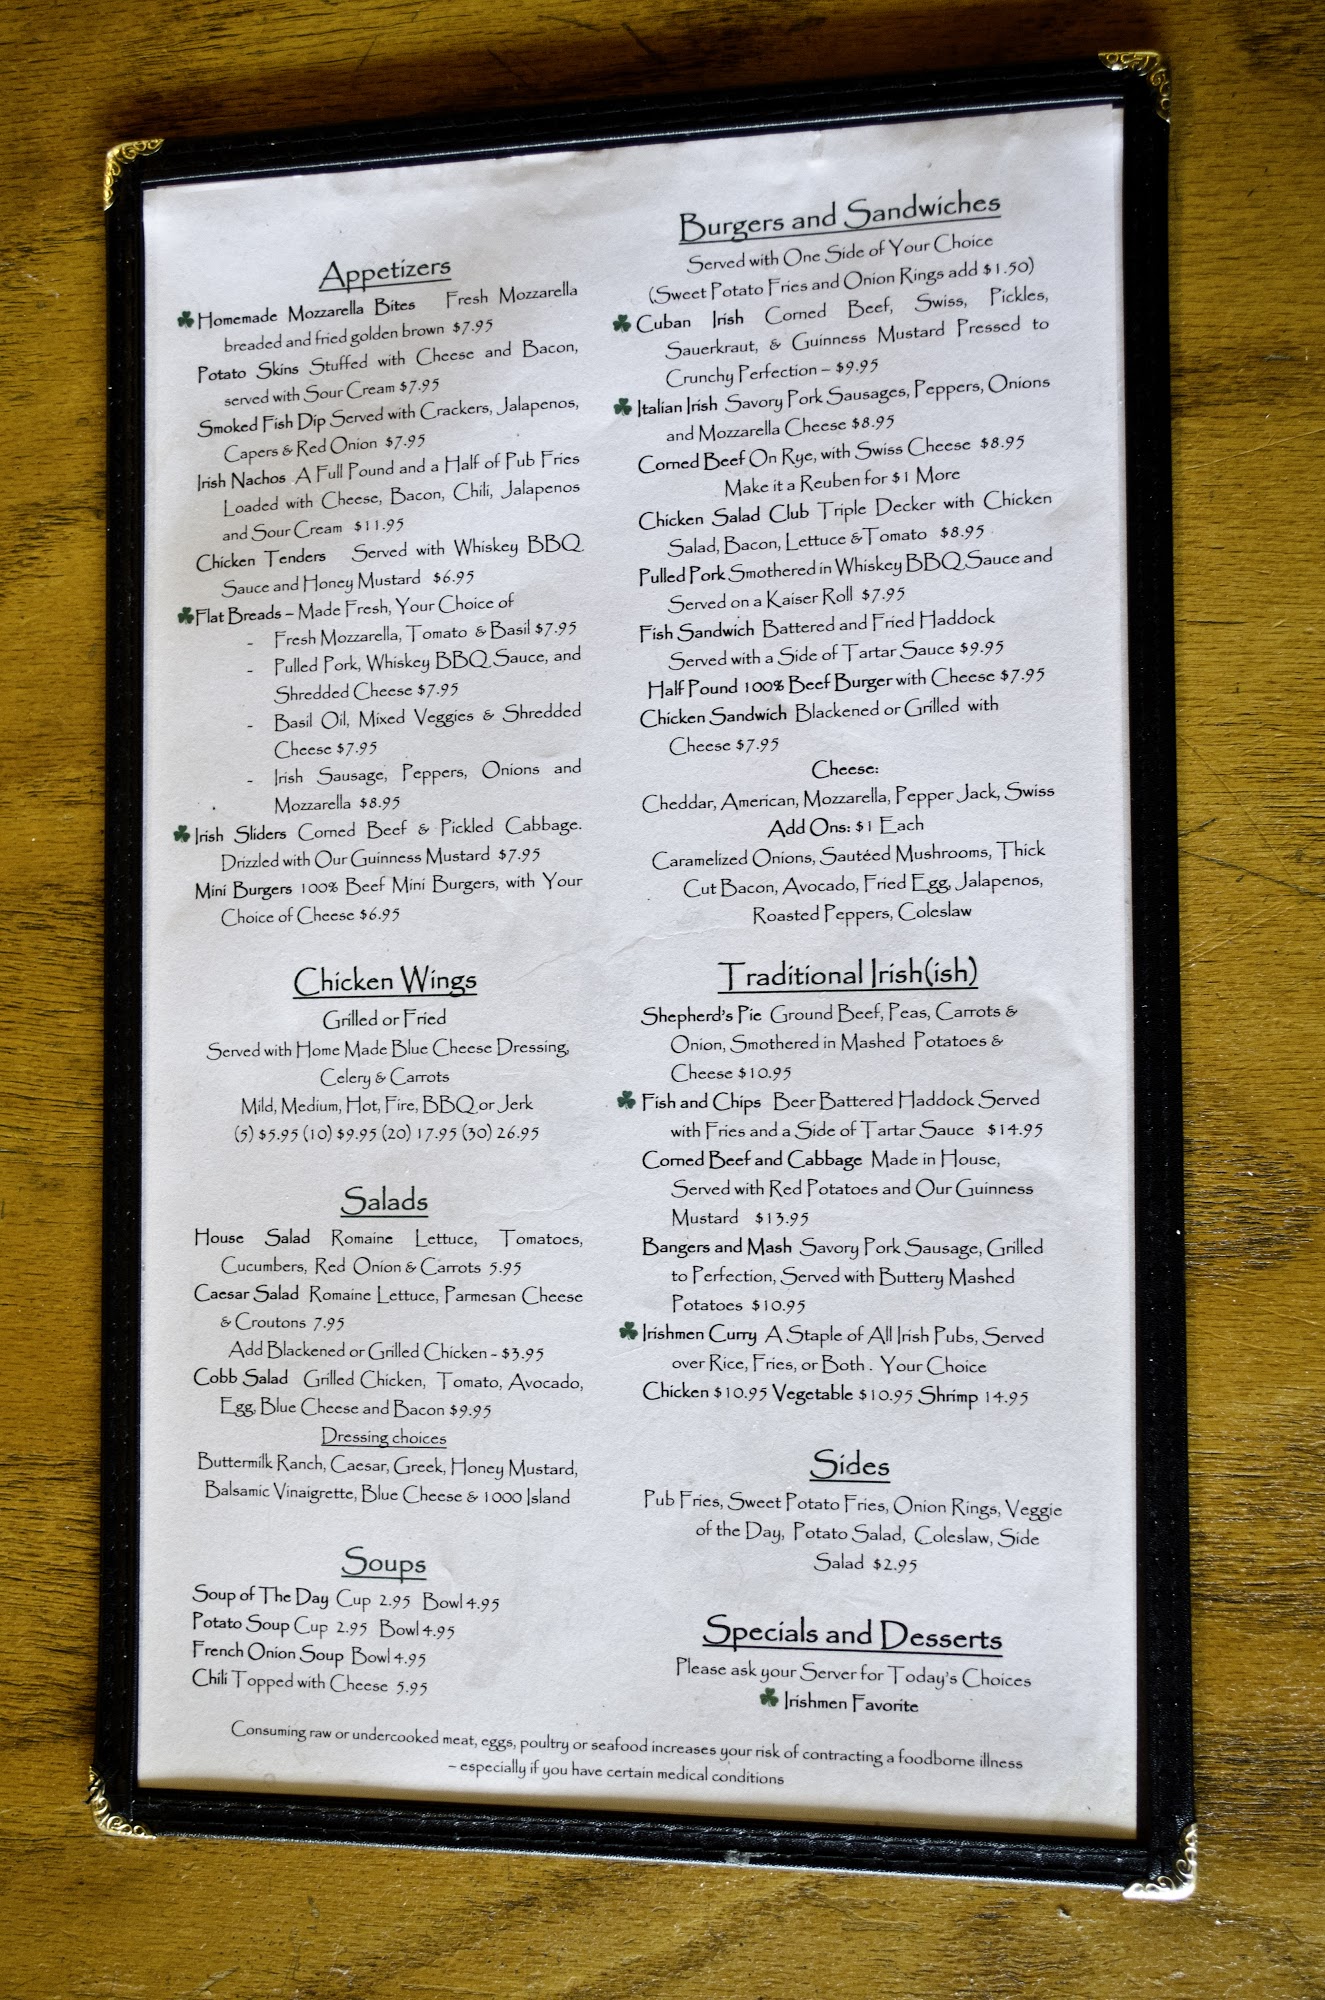 Appetizers
Homemade Mozzarella Bites Fresh Mozzarella
breaded and fried golden brown $7.95
Potato Skins Stuffed with Cheese and Bacon,
served with Sour Cream $7.95
Smoked Fish Dip Served with Crackers, Jalapenos,
Capers & Red Onion $7.95
Irish Nachos A Full Pound and a Half of Pub Fries
Loaded with Cheese, Bacon, Chili, Jalapenos
and Sour Cream $11.95
Chicken Tenders Served with Whiskey BBQ
Sauce and Honey Mustard $6.95
Flat Breads – Made Fresh, Your Choice of
- Fresh Mozzarella, Tomato & Basil $7.95
- Pulled Pork, Whiskey BBQ Sauce, and
Shredded Cheese $7.95
- Basil Oil, Mixed Veggies & Shredded
Cheese $7.95
- Irish Sausage, Peppers, Onions and
Mozzarella $8.95
Irish Sliders Corned Beef & Pickled Cabbage.
Drizzled with Our Guinness Mustard $7.95
Mini Burgers 100% Beef Mini Burgers, with Your
Choice of Cheese $6.95
Chicken Wings
Grilled or Fried
Served with Home Made Blue Cheese Dressing,
Celery & Carrots
Mild, Medium, Hot, Fire, BBQ or Jerk
(5) $5.95 (10) $9.95 (20) 17.95 (30) 26.95
Salads
House Salad Romaine Lettuce, Tomatoes,
Cucumbers, Red Onion & Carrots 5.95
Caesar Salad Romaine Lettuce, Parmesan Cheese
& Croutons 7.95
Add Blackened or Grilled Chicken - $3.95
Cobb Salad Grilled Chicken, Tomato, Avocado,
Egg, Blue Cheese and Bacon $9.95
Dressing choices
Buttermilk Ranch, Caesar, Greek, Honey Mustard,
Balsamic Vinaigrette, Blue Cheese & 1000 Island
Soups
Soup of The Day Cup 2.95 Bowl 4.95
Potato Soup Cup 2.95 Bowl 4.95
French Onion Soup Bowl 4.95
Chili Topped with Cheese 5.95
Burgers and Sandwiches
Served with One Side of Your Choice
(Sweet Potato Fries and Onion Rings add $1.50)
Cuban Irish Corned Beef, Swiss, Pickles,
Sauerkraut, & Guinness Mustard Pressed to
Crunchy Perfection – $9.95
Italian Irish Savory Pork Sausages, Peppers, Onions
and Mozzarella Cheese $8.95
Corned Beef On Rye, with Swiss Cheese $8.95
Make it a Reuben for $1 More
Chicken Salad Club Triple Decker with Chicken
Salad, Bacon, Lettuce & Tomato $8.95
Pulled Pork Smothered in Whiskey BBQ Sauce and
Served on a Kaiser Roll $7.95
Fish Sandwich Battered and Fried Haddock
Served with a Side of Tartar Sauce $9.95
Half Pound 100% Beef Burger with Cheese $7.95
Chicken Sandwich Blackened or Grilled with
Cheese $7.95
Cheese:
Cheddar, American, Mozzarella, Pepper Jack, Swiss
Add Ons: $1 Each
Caramelized Onions, Sautéed Mushrooms, Thick
Cut Bacon, Avocado, Fried Egg, Jalapenos,
Roasted Peppers, Coleslaw
Traditional Irish(ish)
Shepherd's Pie Ground Beef, Peas, Carrots &
Onion, Smothered in Mashed Potatoes &
Cheese $10.95
Fish and Chips Beer Battered Haddock Served
with Fries and a Side of Tartar Sauce $14.95
Corned Beef and Cabbage Made in House,
Served with Red Potatoes and Our Guinness
Mustard $13.95
Bangers and Mash Savory Pork Sausage, Grilled
to Perfection, Served with Buttery Mashed
Potatoes $10.95
Irishmen Curry A Staple of All Irish Pubs, Served
over Rice, Fries, or Both . Your Choice
Chicken $10.95 Vegetable $10.95 Shrimp 14.95
Sides
Pub Fries, Sweet Potato Fries, Onion Rings, Veggie
of the Day, Potato Salad, Coleslaw, Side
Salad $2.95
Specials and Desserts
Please ask your Server for Today's Choices
Irishmen Favorite
Consuming raw or undercooked meat, eggs, poultry or seafood increases your risk of contracting a foodborne illness
– especially if you have certain medical conditions